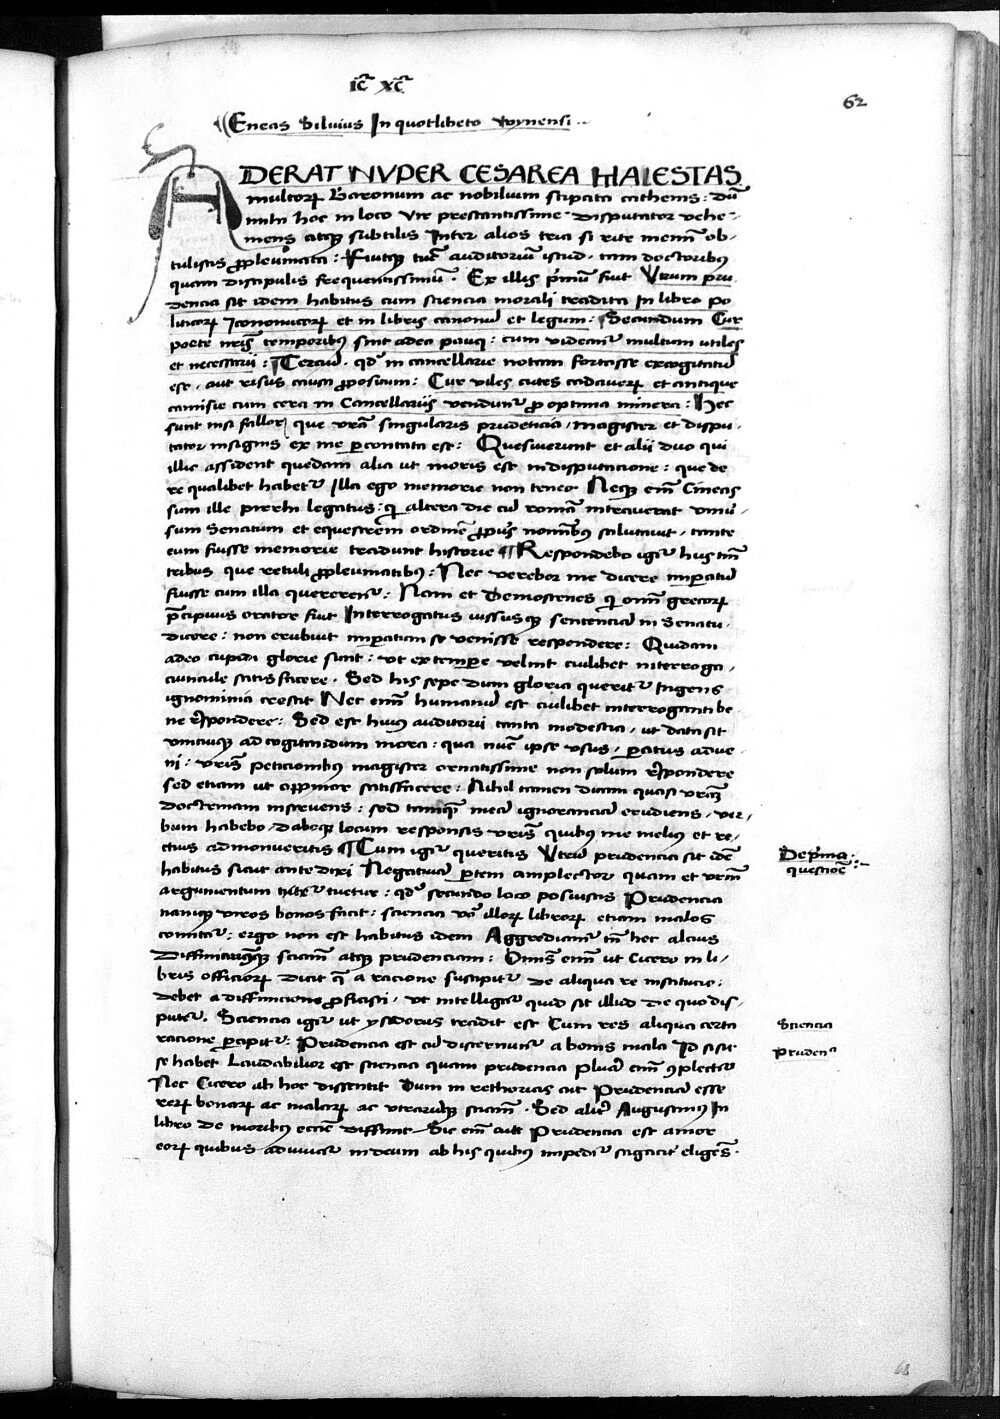 IC̄ XC̄
62
Eneas Silvius In quotlibeto Wynensi
ADERAT NVPER CESAREA MAIESTAS
multoꝝ Baronum ac nobilium stipata cathervis: dū
mihi hoc in loco vir prestantissime disputator vehe-
mens atqꝫ subtilis Inter alios tria si rite memī ob-
tulistis ꝓpleumata: Fuitqꝫ tūc auditoriū istud, tam doctoribus
quam discipulis frequentissimū. Ex illis p̄mū fuit Vtrum pru-
dencia sit idem habitus cum sciencia morali tradita In libro po
liticoꝝ Iconomicoꝝ et in libris canonū et legum: Secundum Cur
poete nr̄is temporibus sint adeo pauci: cum videant̄ multum utiles
et necessarii: Terciū. qd̓ in cancellarie notam fortasse excogitatū
est, aut risus causa ꝓpositum: Cur viles cutes cadaveꝝ et antique
camisie cum cera in Cancellariis vendunt̄ ꝓ optima minera: Hec
sunt nisi fallor que vr̄a singularis prudencia, magister et dispu-
tator insignis ex me ꝑcontata est: Quesiverunt et alii duo qui
illic assident quedam alia ut moris est in disputacione: que de
re qualibet habet̄ Illa ego memorie non teneo Neqꝫ em̄ Cineas
sum ille pirrhi legatus: qi altera die cū romā intraverat vniū-
sum Senatum et equestrem ordinē ꝓpriis nominibus salutavit, tante
eum fuisse memorie tradunt historie Respondebo igit̄ his tn̄
tribus que retuli ꝓpleumatibus: Nec verebor me dicere imparatū
fuisse cum illa quererent̄: Nam et Demostenes qi om̄ grecoꝝ
p̄cipuus orator fuit Interrogatus iussusqꝫ sentenciā in Senatu
dicere: non erubuit imparatum se venisse respondere: Quidam
adeo cupidi glorie sunt: ut ex tempore velint cuilibet interroga-
ciuncule satisfacere. Sed his sepe dum gloria querit̄ Ingens
ignominia crescit Nec em̄ humanū est cuilibet interroganti be-
ne rn̄spondere: Sed est huius auditorii tanta modestia, ut data sit
vnicuiqꝫ ad cogitandum mora: qua nūc ipse vsus, paratus adve-
ni: vr̄is peticionibus magister ornatissime non solum rn̄spondere
sed etiam ut opinor satisfacere: Nihil tamen dicam quasi vr̄am
doctrinam instruens: sed tamqm̄ meā ignoranciā erudiens, ver-
bum habebo, daboqꝫ locum responsis vr̄is quibus me melius et re-
ctius admonueritis Cum igit̄ queritis Vtrū prudencia sit idē
habitus sicut ante dixi Negativā ꝑtem amplector quam et vr̄m
argumentum tuetur: qd̓ secundo loco posuistis Prudencia
namqꝫ viros bonos facit: sciencia vō illoꝝ libroꝝ etiam malos
comitat̄: ergo non est habitus idem Aggrediamr̄ tn̄ hec alcius
Diffiniamusqꝫ sciam̄ atqꝫ prudenciam: Omīs em̄ ut Cicero in li-
bris officioꝝ dicit q̄ a racione suscipit̄ de aliqua re institucio:
debet a diffinicione ꝓficisci, ut intelligat̄ quid sit illud de quo dis-
putet̄. Sciencia igit̄ ut ysidorus tradit est Cum res aliqua certa
racione ꝑcipit̄: Prudencia est cū discernunt̄ a bonis mala Id si sic
se habet Laudabilior est sciencia quam prudencia Plura em̄ ꝯplectit̄
Nec Cicero ab hoc dissentit Dum in rethoricis ait Prudenciā esse
reꝝ bonaꝝ ac malaꝝ ac vtrarumqꝫ sciam̄. Sed alit̄ Augustinus In
libro de moribus eccīe diffinit, Sic em̄ ait Prudencia est amor
eoꝝ quibus adiuuat̄ in deum ab his quibus impedit̄ sagacit̄ eligens.
De p̄ma
questioē
Sciencia
Prudenᵃ
68